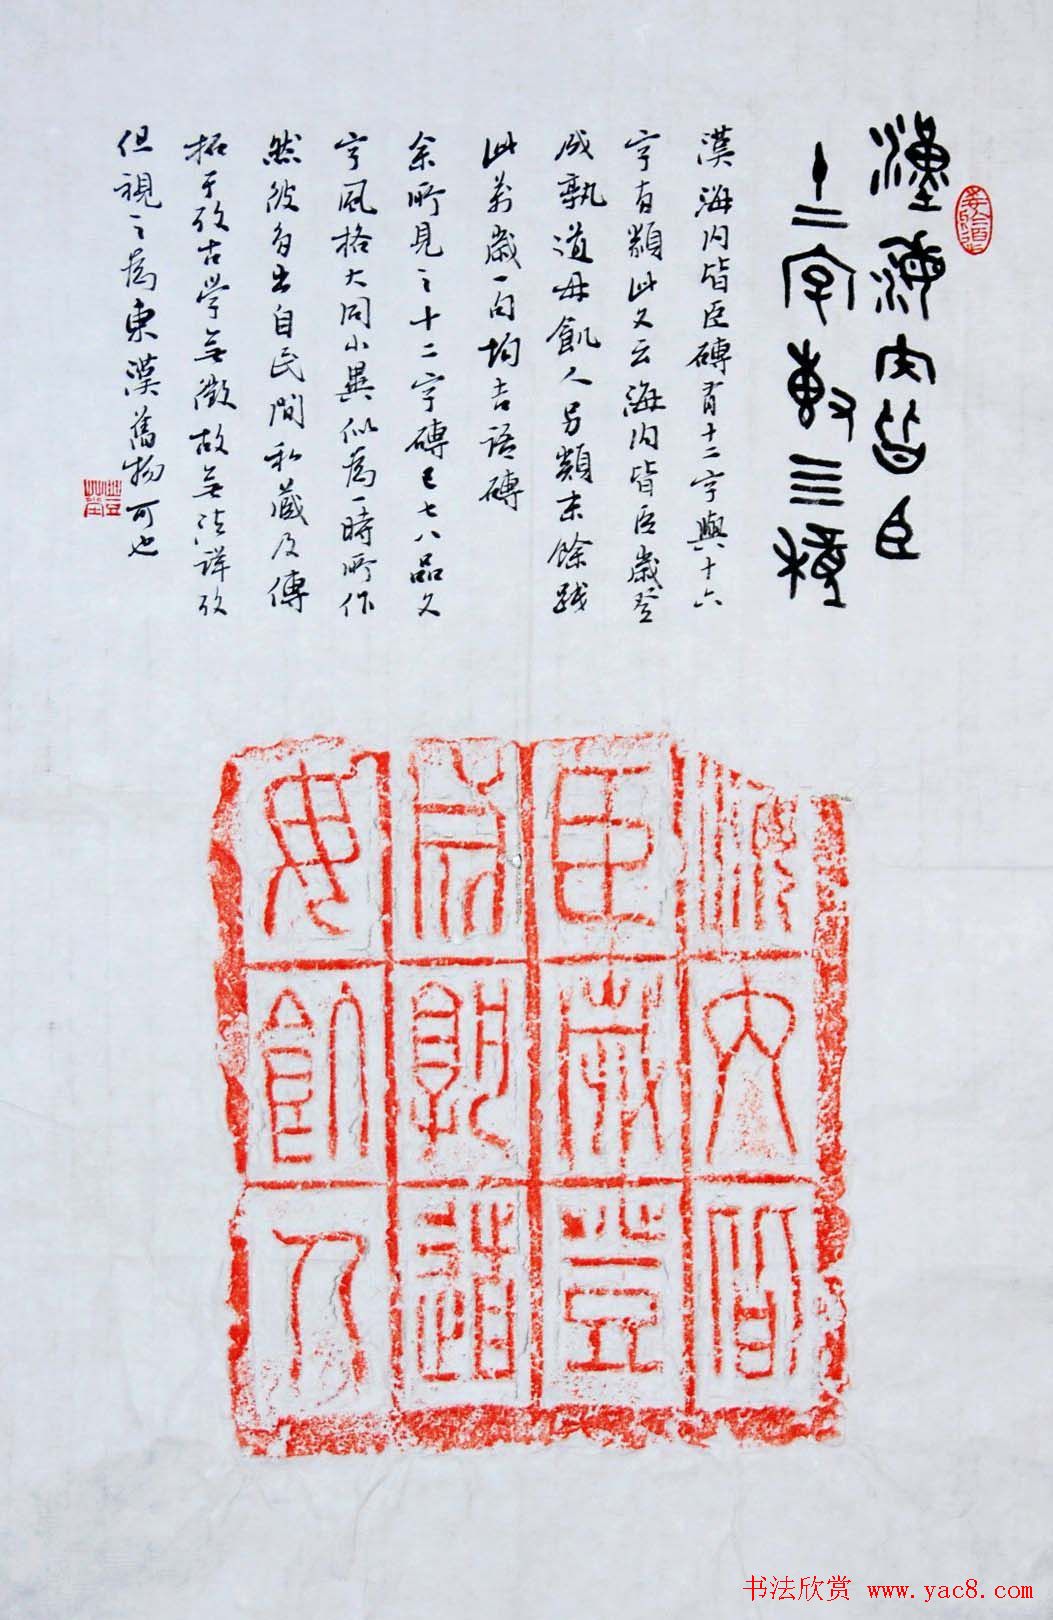 漢海内皆臣
十二字磚三種
漢海内皆臣磚有十二字與十六
字有類此文云海内皆臣歲登
成孰道毋飢人另類末餘踐
此萬歲一句均吉語磚
余所見之十二字磚已七八品文
字風格大同小異似為一時所作
然彼多出自民間私藏及傳
拓于攷古學無徵故無法詳攷
但視之為東漢舊物可也
海内皆
臣歲登
成孰道
毋飢人
书法欣赏 www.yac8.com